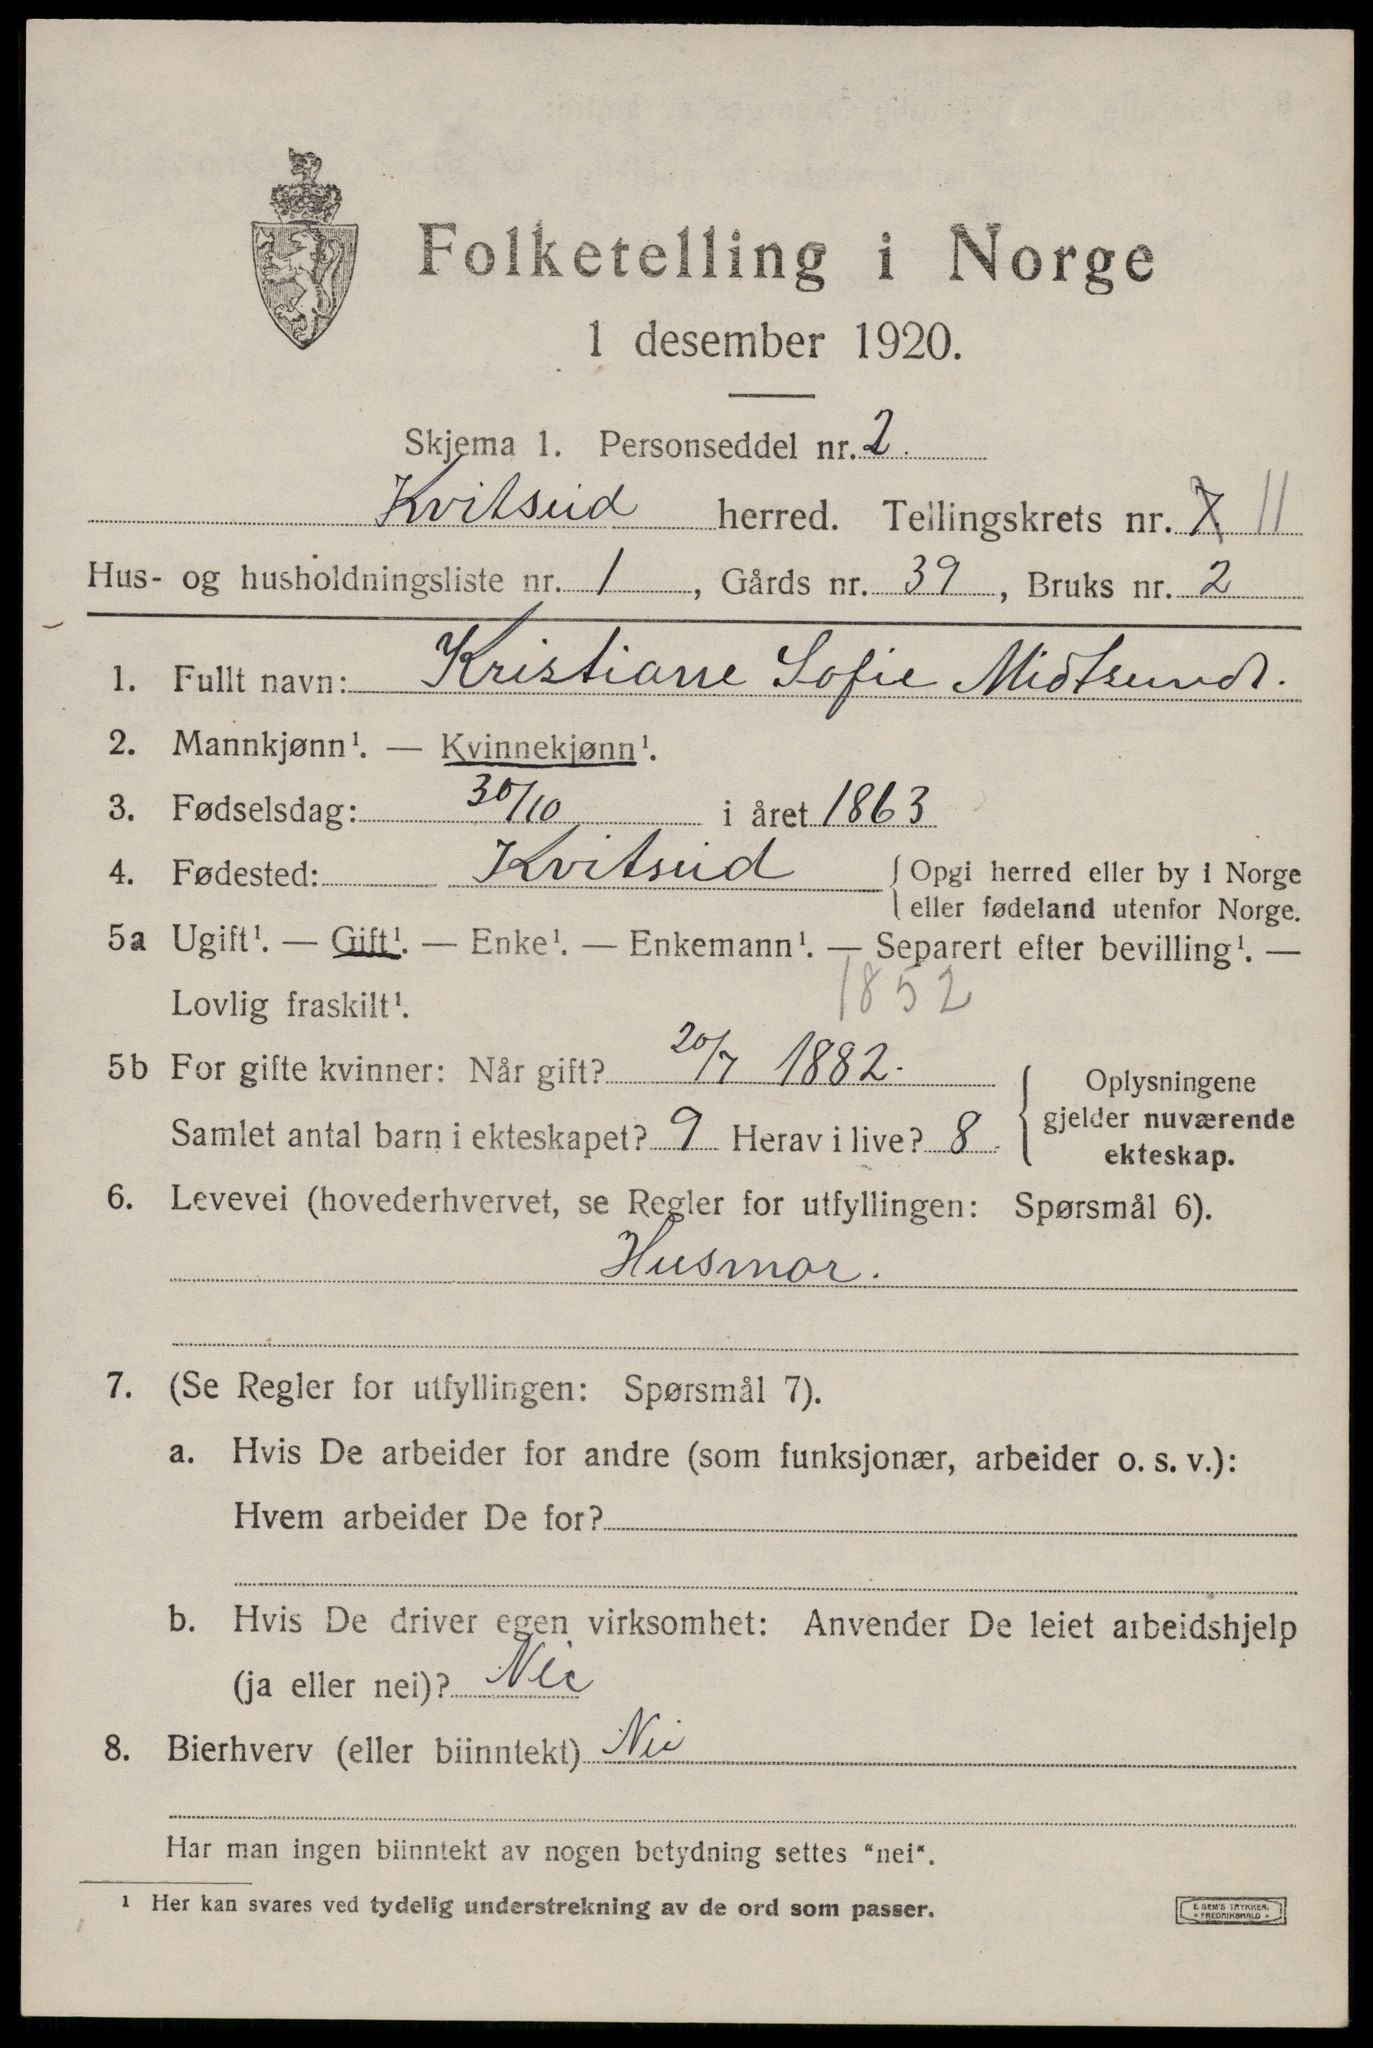 Folketelling i Norge
1 desember 1920.
Skjema 1. Personseddel nr. 2.
Kvitseid herred. Tellingskrets nr. 7 11
Hus- og husholdningsliste nr. 1, Gårds nr. 39, Bruks nr. 2
1. Fullt navn: Kristiane Sofie Midtsund.
2. Mannkjønn¹. — Kvinnekjønn¹.
3. Fødselsdag: 30/10 i året 1863
4. Fødested: Kvitseid { Opgi herred eller by i Norge
eller fødeland utenfor Norge.
5a Ugift¹. — Gift¹. — Enke¹. — Enkemann¹. — Separert efter bevilling¹. —
Lovlig fraskilt¹. 1852
5b For gifte kvinner: Når gift? 20/7 1882. { Oplysningene
gjelder nuværende
Samlet antal barn i ekteskapet? 9 Herav i live? 8. ekteskap.
6. Levevei (hovederhvervet, se Regler for utfyllingen: Spørsmål 6).
Husmor.
7. (Se Regler for utfyllingen: Spørsmål 7).
a. Hvis De arbeider for andre (som funksjonær, arbeider o. s. v.):
Hvem arbeider De for?
b. Hvis De driver egen virksomhet: Anvender De leiet arbeidshjelp
(ja eller nei)? Nei
8. Bierhverv (eller biinntekt) Nei
Har man ingen biinntekt av nogen betydning settes "nei".
1 Her kan svares ved tydelig understrekning av de ord som passer.
E. SEM'S TRYKKERI.
FREDRIKSHALD